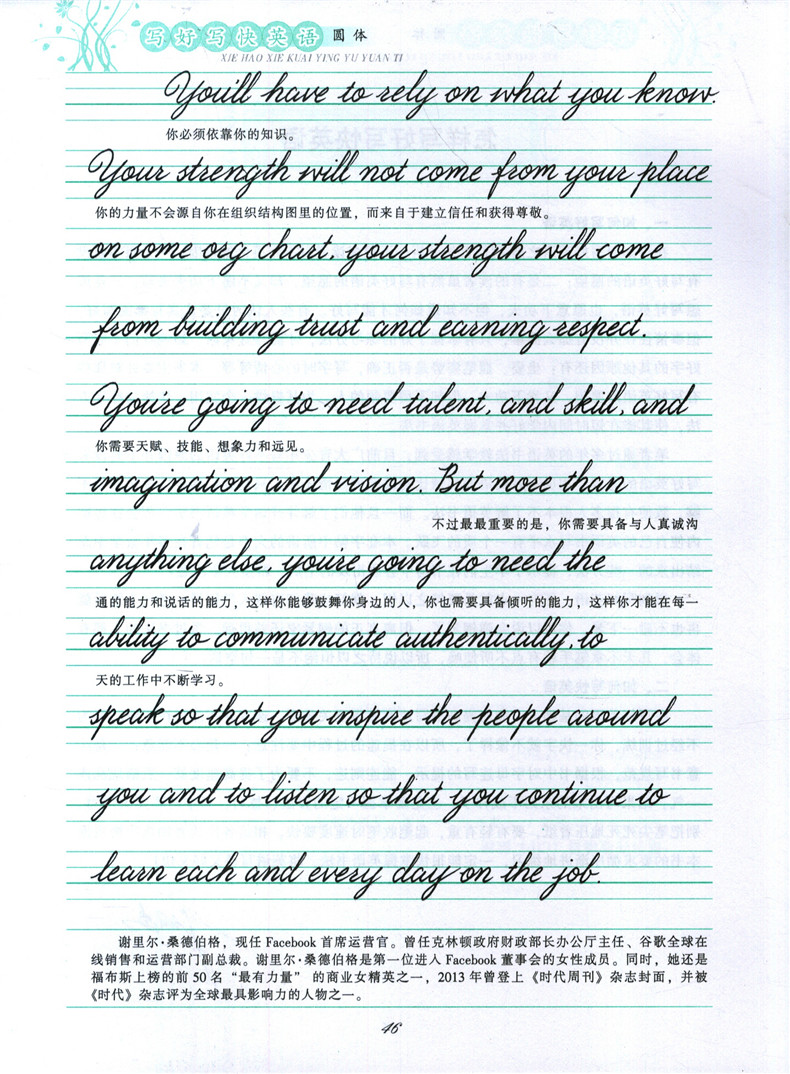 写好写快英语 圆体
XIE HAO XIE KUAI YING YU YUAN TI
You'll have to rely on what you know.
你必须依靠你的知识。
Your strength will not come from your place
你的力量不会源自你在组织结构图里的位置，而来自于建立信任和获得尊敬。
on some org chart, your strength will come
from building trust and earning respect.
You're going to need talent, and skill, and
你需要天赋、技能、想象力和远见。
imagination and vision. But more than
不过最最重要的是，你需要具备与人真诚沟
anything else, you're going to need the
通的能力和说话的能力，这样你能够鼓舞你身边的人，你也需要具备倾听的能力，这样你才能在每一
ability to communicate authentically, to
天的工作中不断学习。
speak so that you inspire the people around
you and to listen so that you continue to
learn each and every day on the job.
谢里尔·桑德伯格，现任 Facebook 首席运营官。曾任克林顿政府财政部长办公厅主任、谷歌全球在
线销售和运营部门副总裁。谢里尔·桑德伯格是第一位进入 Facebook 董事会的女性成员。同时，她还是
福布斯上榜的前 50 名“最有力量”的商业女精英之一，2013 年曾登上《时代周刊》杂志封面，并被
《时代》杂志评为全球最具影响力的人物之一。
46